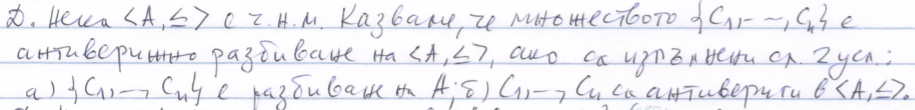 Д. Нека <A,≤> е ч.н.м. Казваме, че множеството {C₁,–,Cₙ} е
антиверижно разбиване на <A,≤>, ако са изпълнени сл. 2 усл.:
а) {C₁,→Cₙ} е разбиване на A; б) C₁,→Cₙ са антивериги в <A,≤>.